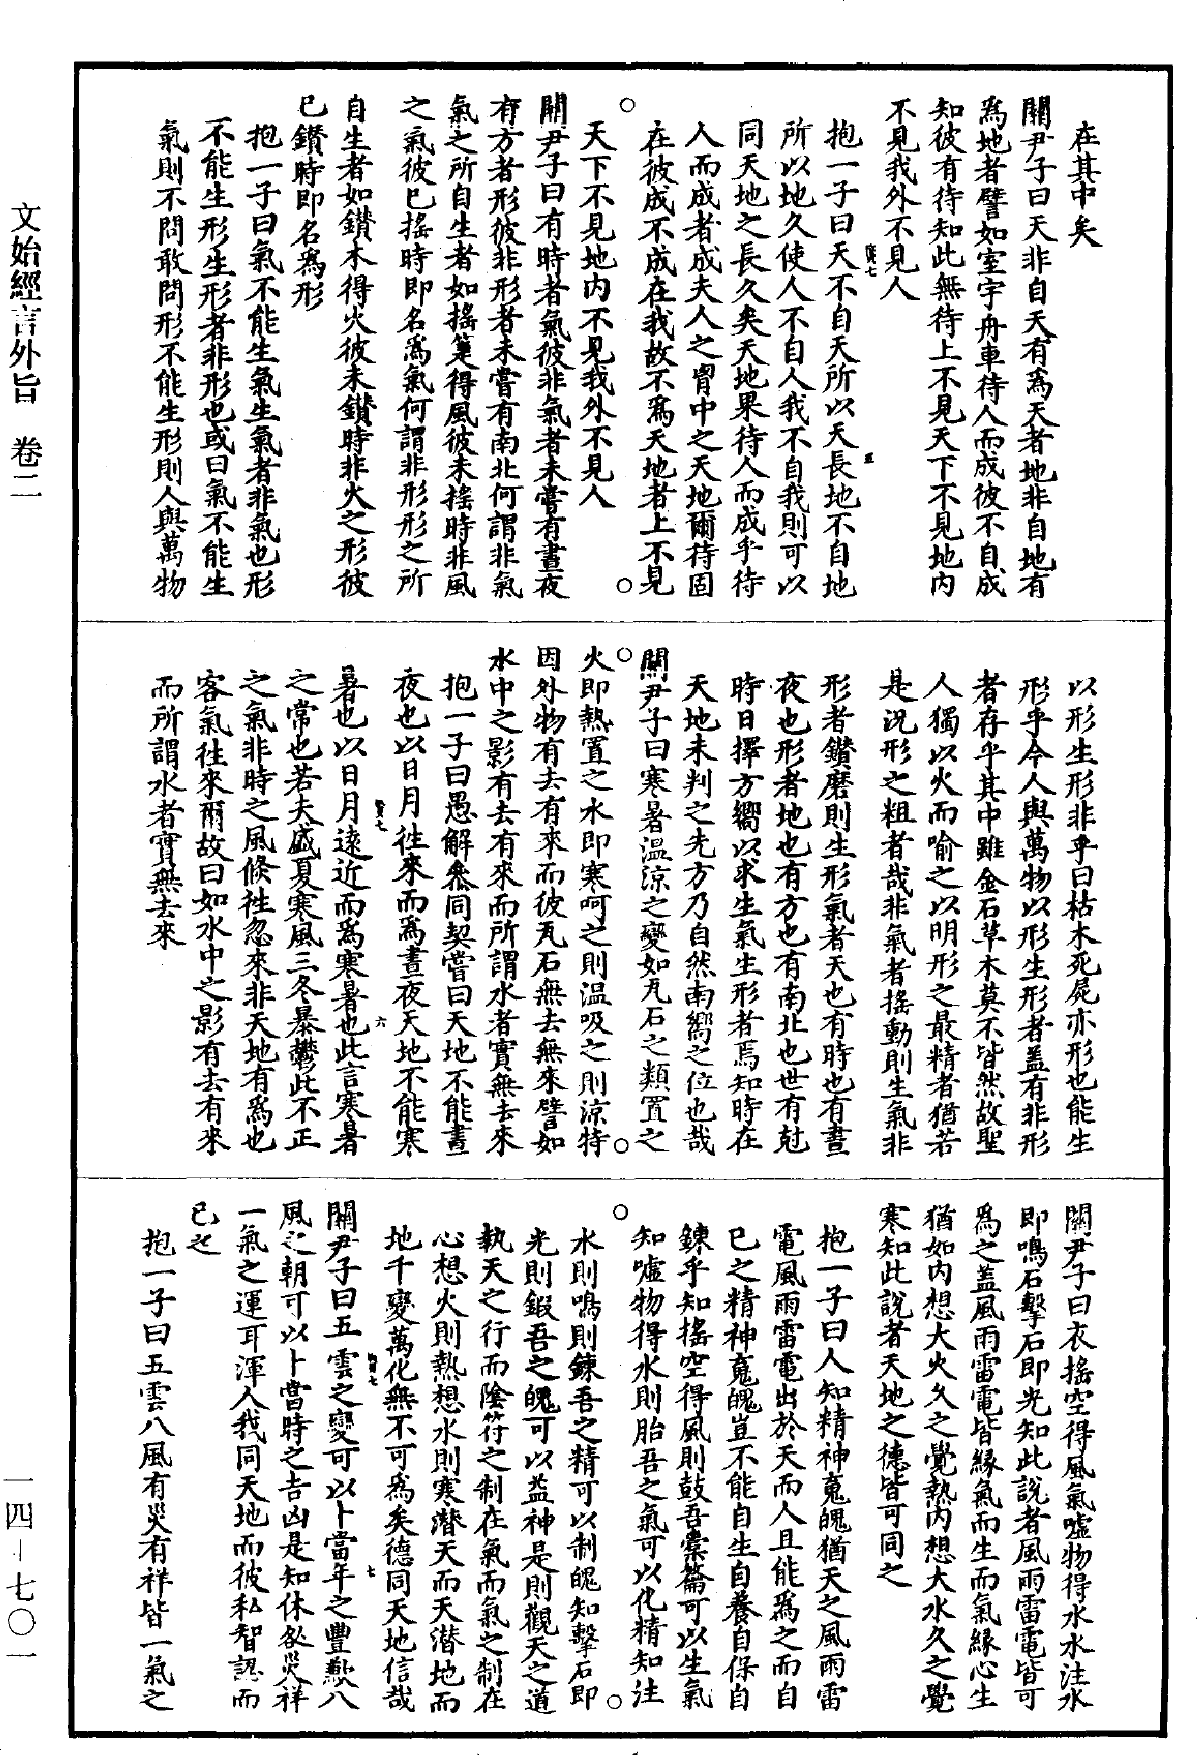 在其中矣
關尹子曰天非自天有爲天者地非自地有
爲地者譬如室宇舟車待人而成彼不自成
知彼有待知此無待上不見天下不見地內
不見我外不見人
抱一子曰天不自天所以天長地不自地
所以地久使人不自人我不自我則可以
同天地之長久矣天地果待人而成乎待
人而成者成夫人之胷中之天地爾待固
在彼成不成在我故不爲天地者上不見
天下不見地內不見我外不見人
關尹子曰有時者氣彼非氣者未嘗有晝夜
有方者形彼非形者未嘗有南北何謂非氣
氣之所自生者如搖箑得風彼未搖時非風
之氣彼已搖時即名爲氣何謂非形形之所
自生者如鑽木得火彼未鑽時非火之形彼
已鑽時即名爲形
抱一子曰氣不能生氣生氣者非氣也形
不能生形生形者非形也或曰氣不能生
氣則不問敢問形不能生形則人與萬物
以形生形非乎曰枯木死屍亦形也能生
形乎今人與萬物以形生形者蓋有非形
者存乎其中雖金石草木莫不皆然故聖
人獨以火而喻之以明形之最精者猶若
是況形之粗者哉非氣者搖動則生氣非
形者鑽磨則生形氣者天也有時也有晝
夜也形者地也有方也有南北也世有尅
時日擇方嚮以求生氣生形者焉知時在
天地未判之先方乃自然南嚮之位也哉
關尹子曰寒暑溫涼之變如瓦石之類置之
火即熱置之水即寒呵之則溫吸之則涼特
因外物有去有來而彼瓦石無去無來譬如
水中之影有去有來而所謂水者實無去來
抱一子曰愚解叅同契嘗曰天地不能晝
夜也以日月往來而爲晝夜天地不能寒
暑也以日月遠近而爲寒暑也此言寒暑
之常也若夫盛夏寒風三冬暴鬱此不正
之氣非時之風倐往忽來非天地有爲也
客氣往來爾故曰如水中之影有去有來
而所謂水者實無去來
關尹子曰衣搖空得風氣噓物得水水注水
即鳴石擊石即光知此說者風雨雷電皆可
爲之蓋風雨雷電皆緣氣而生而氣緣心生
猶如內想大火久之覺熱內想大水久之覺
寒知此說者天地之德皆可同之
抱一子曰人知精神䰟魄猶天之風雨雷
電風雨雷電出於天而人且能爲之而自
已之精神䰟魄豈不能自生自養自保自
鍊乎知搖空得風則鼓吾橐籥可以生氣
知噓物得水則胎吾之氣可以化精知注
水則鳴則鍊吾之精可以制魄知擊石即
光則鍛吾之魄可以益神是則觀天之道
執天之行而陰符之制在氣而氣之制在
心想火則熱想水則寒潛天而天潛地而
地千變萬化無不可爲矣德同天地信哉
關尹子曰五雲之變可以卜當年之豐歉八
風之朝可以卜當時之吉凶是知休咎災祥
一氣之運耳渾人我同天地而彼私智認而
已之
抱一子曰五雲八風有災有祥皆一氣之
文始經言外旨　卷二
一四－七〇一